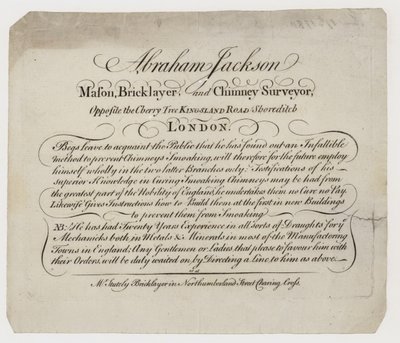 Abraham Jackson
Mason, Bricklayer, and Chimney Surveyor,
Opposite the Cherry Tree KINGSLAND ROAD Shoreditch
LONDON.
Begs leave to acquaint the Public that he has found out an Infallible
Method to prevent Chimneys Smoaking, will therefore for the future employ
himself wholly in the two latter Branches only; Testifications of his
superior Knowledge in Curing Smoaking Chimneys may be had from
the greatest part of the Nobility of England, he undertakes them no Cure no Pay.
Likewise Gives Instructions how to Build them at the first in new Buildings
to prevent them from Smoaking
NB: He has had Twenty Years Experience in all Sorts of Draughts for ye
Mechanicks both in Metals & Minerals in most of the Manufacturing
Towns in England; Any Gentlemen or Ladies that please to favour him with
their Orders, will be duly waited on by Directing a Line to him as above
Mr. Bricklayer in Northumberland Street Charing Cross.